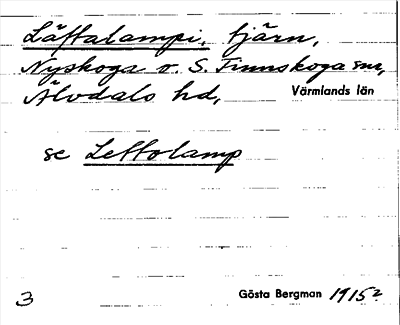 Läffalampi, tjärn,
Nyskoga o. S. Finnskoga snr,
Älvdals hd, Värmlands län
se Leffolamp
3 Gösta Bergman 1915?